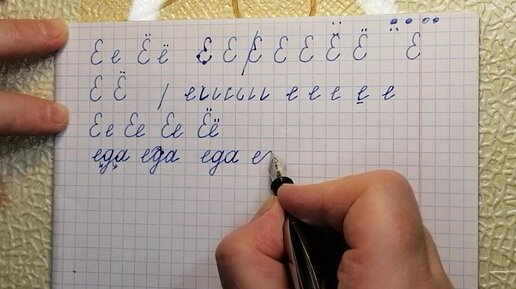 Ее Ёё Е Е Е Е Е Ё Ё Ё
Е Ё / еιιιιιι е е е е е
Ее Ее Ее Ёё
еда еда еда е